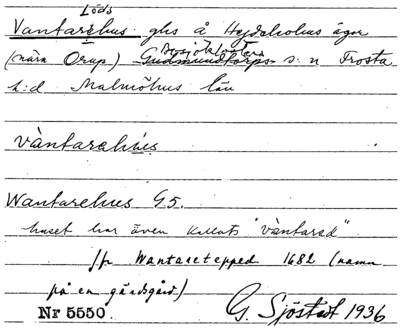 Löds
Vantarehus ghs å Hejdeholms ägor
Bosjöklosters
(nära Orup) Gudmundtorps s:n Frosta
h:d Malmöhus län
vàntarehùs
Wantarehus G5.
huset har även kallats "vàntared"
jfr Wantaretepped 1682 (namn
på en gärdsgård)
Nr 5550 G. Sjöstedt 1936